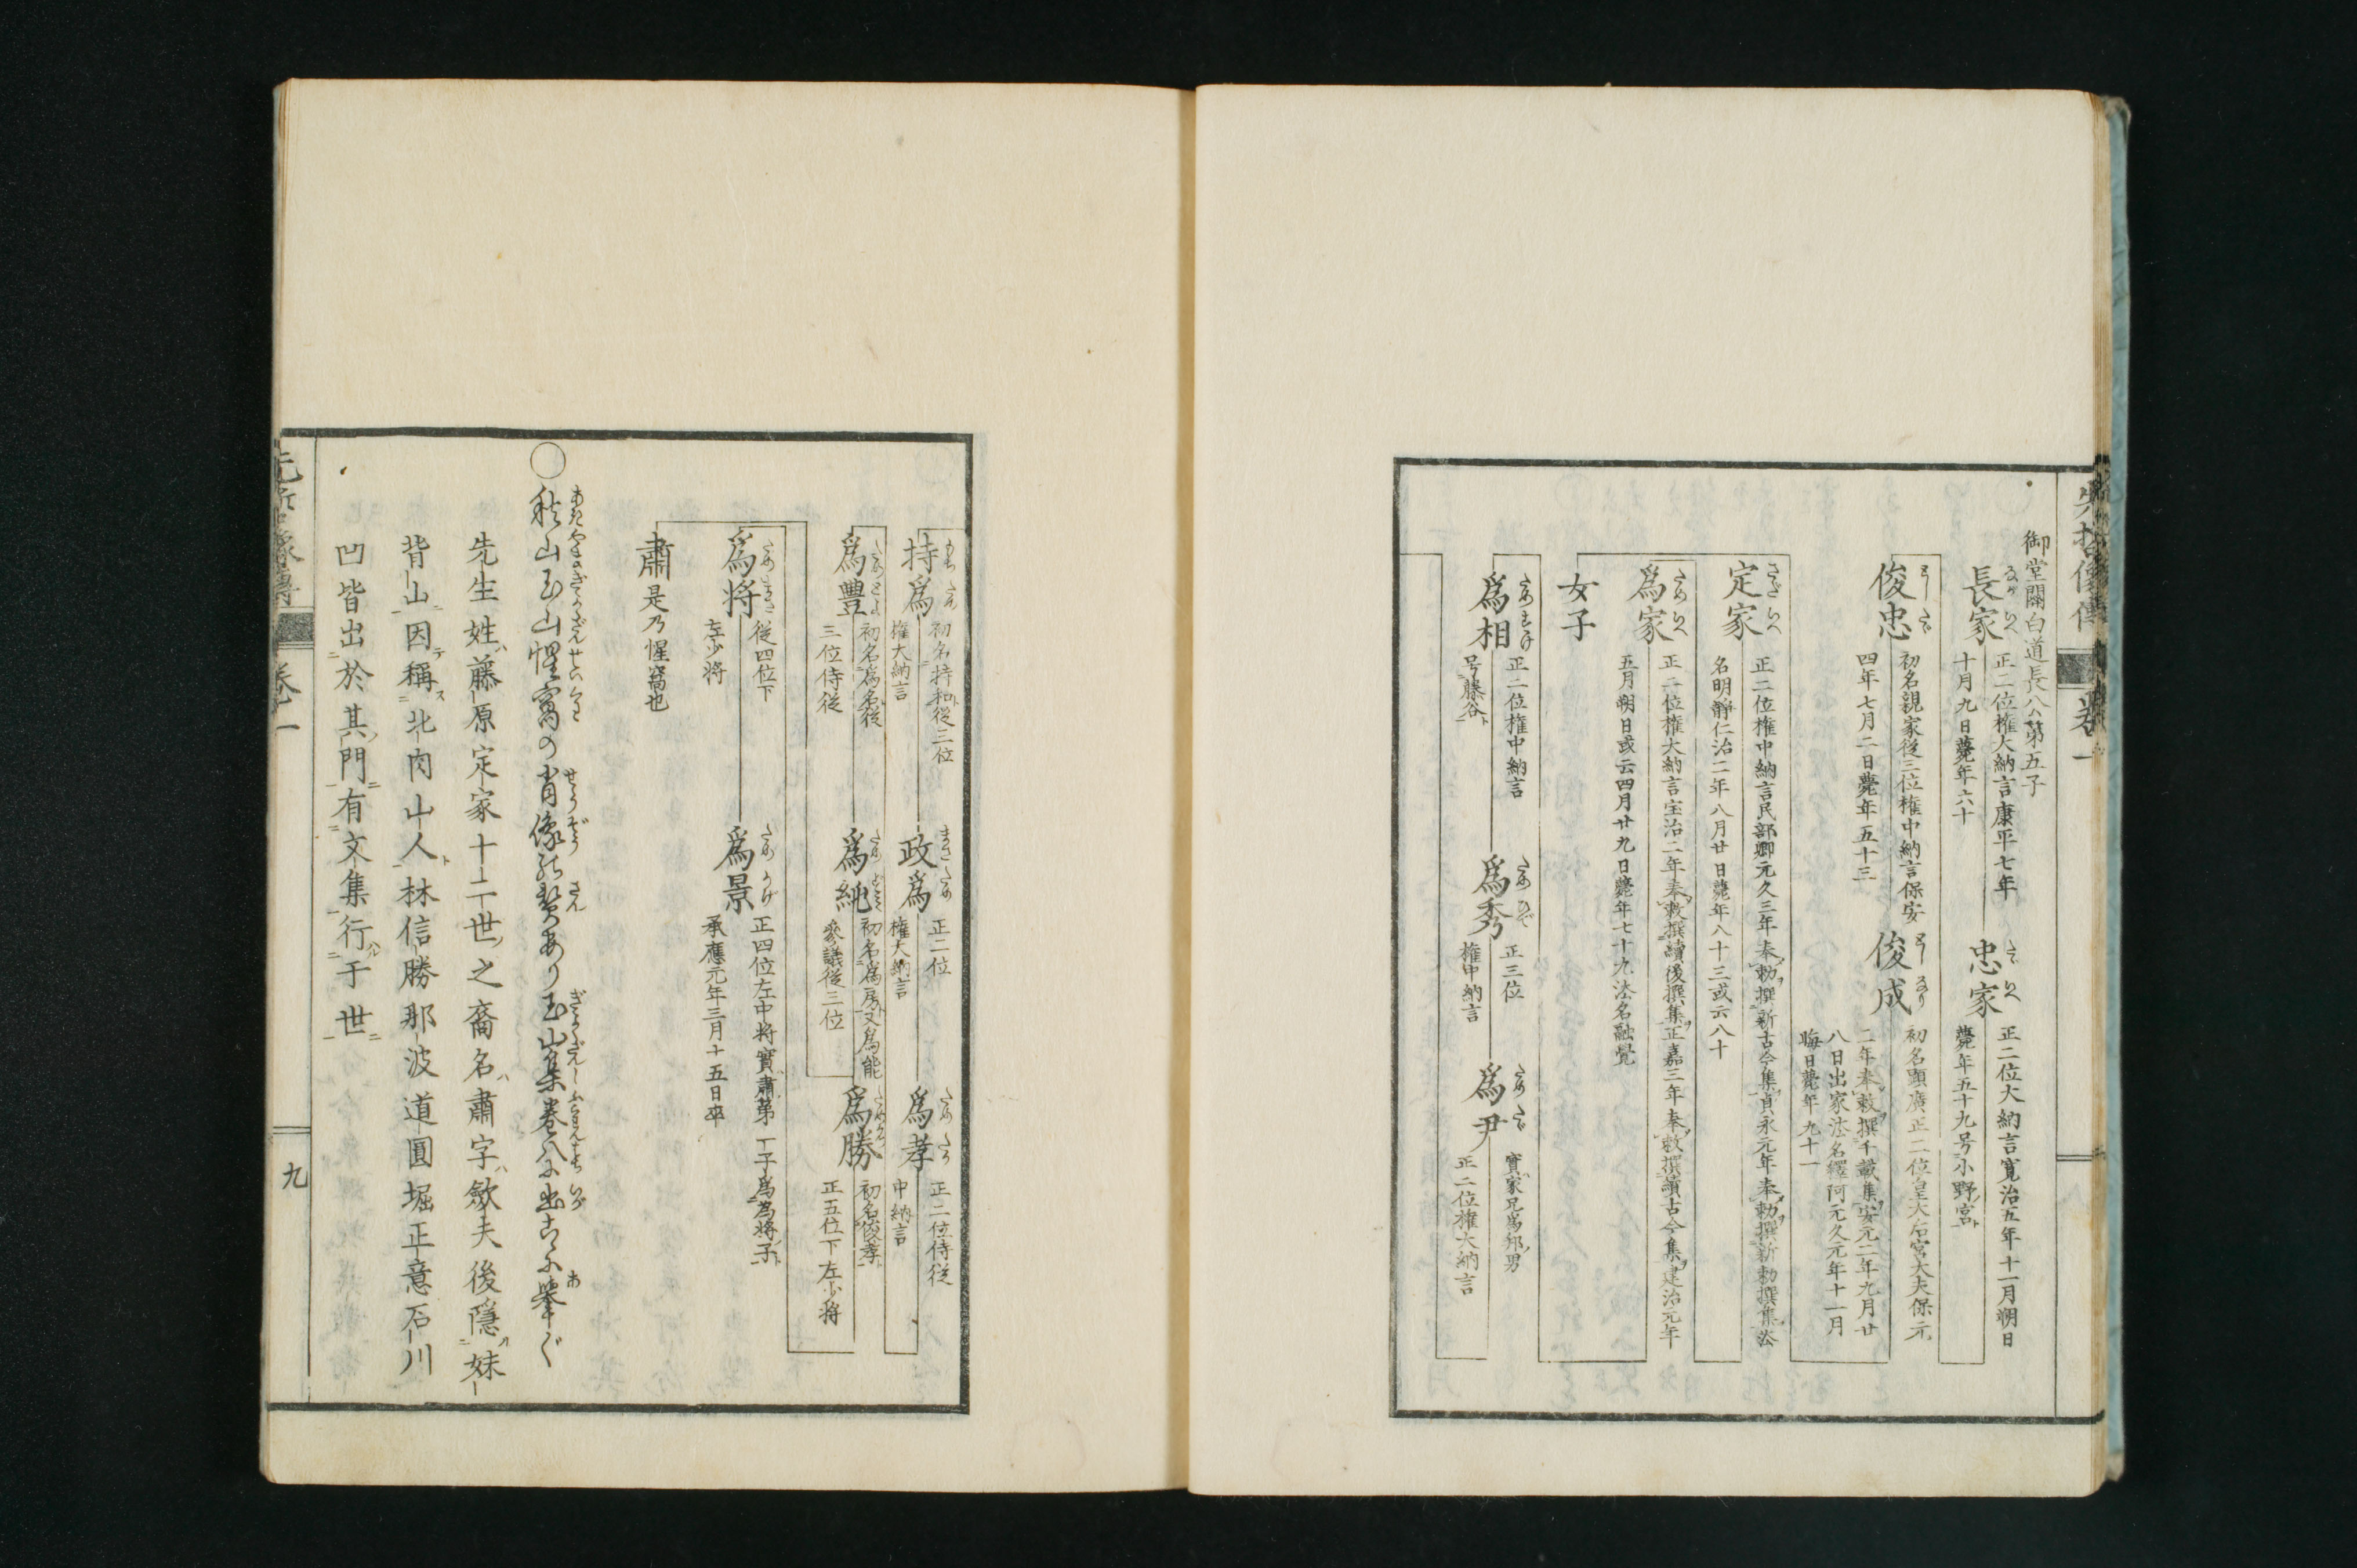 先哲像傳
卷一
御堂關白道長公第五子
長家
正二位權大納言康平七年
十月九日薨年六十
忠家
正二位大納言寛治五年十一月朔日
薨年五十九号小野宮
俊忠
初名親家從三位權中納言保安
四年七月二日薨年五十三
俊成
初名顕廣正二位皇太后宮大夫保元
二年奉敕撰千載集安元二年九月廿
八日出家法名釋阿元久元年十一月
晦日薨年九十一
定家
正二位權中納言民部卿元久三年奉勅撰新古今集貞永元年奉勅撰新勅撰集法
名明靜仁治二年八月廿日薨年八十三或云八十
爲家
正二位權大納言宝治二年奉敕撰續後撰集正嘉三年奉敕撰續古今集建治元年
五月朔日或云四月廿九日薨年七十九法名融覺
女子
爲相
正二位權中納言
号藤谷
爲秀
正三位
權中納言
爲尹
實家兄爲邦男
正二位權大納言
持爲
初名持和從三位
權大納言
政爲
正二位
權大納言
爲孝
正二位侍從
中納言
爲豐
初名爲名從
三位侍從
爲純
初名爲房又爲能
參議從三位
爲勝
初名俊孝
正五位下左少將
爲將
從四位下
左少將
爲景
正四位左中將實肅第一子爲爲將子
承應元年三月十五日卒
肅
是乃惺窩也
○秋山玉山惺窩の肖像の賛あり玉山集卷八に出こゝに擧ぐ
先生姓藤原定家十二世之裔名肅字歛夫後隱妹
背山因稱北肉山人林信勝那波道圓堀正意石川
凹皆出於其門有文集行于世
先哲像傳
卷一
九